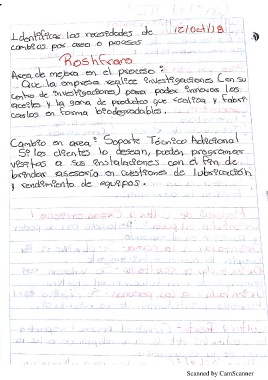 Identificar las necesidades de 12/Oct/18
cambios por area o procesos
Roshfrans
Area de mejora en el proceso:
Que la empresa realice investigaciones (en su
centro de investigaciones) para poder innovar los
aceites y la gama de productos que realiza y fabri-
carlos en forma biodegradables.
Cambio en area: Soporte Técnico Adicional
Si los clientes lo desean, pueden programar
visitas a sus instalaciones con el fin de
brindar asesoría en cuestiones de lubricación
y rendimiento de equipos.
Scanned by CamScanner